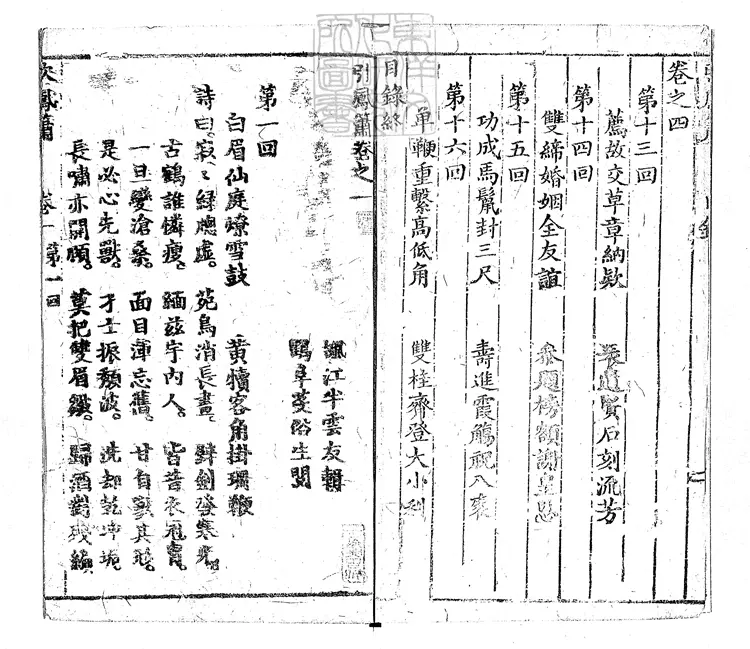 卷之四
第十三回
薦故交草章納欵
衆遺賢石刻流芳
第十四回
雙締婚姻全友誼
叅題榜額謝皇恩
第十五回
功成馬鬣封三尺
壽進霞觴祝八袠
第十六回
单鞭重繫高低角
雙桂齊登大小科
目錄終
引鳳簫卷之一
江半雲友輯
鶴阜芟俗生閱
第一回
白眉仙庭燎雪鼓
黄犢客角掛珊鞭
詩曰。寂。綠牕虛。苑鳥消長晝。
古鶴誰憐瘦。緬兹宇內人。皆昔衣冠
一旦變滄桑。面目渾忘舊。甘自其形。
是必心先獸。才士振頹波。洗却乾坤垢。
長嘯亦開頤。莫把雙眉鎖。歸酒對殘
鳳簫
卷一
第一回